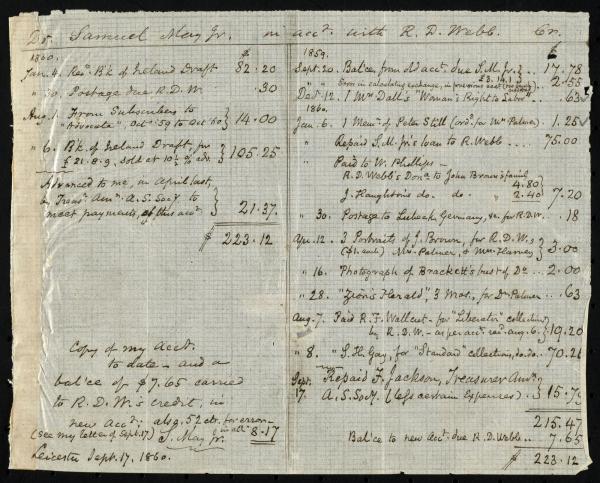 Dr. Samuel May Jr. in acct. with R. D. Webb. Cr.
1860. $
Jan. 4. Recd. Bk. of Ireland Draft 82.20
" 30. Postage due R. D. W. .30
Aug. 1. From Subscribers to
"Advocate", Oct. '59 to Oct. '60 } 14.00
" 6. Bk. of Ireland Draft, for
£21.8.9, sold at 10½ % adv. } 105.25
Advanced to me, in April last,
by Treasr. Amn. A. S. Socy. to
meet payments, of this acct. } 21.37.
$ 223.12
Copy of my Acct.
to date - and a
bal'ce of $7.65 carried
to R. D. W.'s credit, in
new Acct. also, 52 cts. for error -
(see my letter of Sept. 17) in all 8.17
S. May Jr.
Leicester Sept. 17. 1860.
1859. $
Sept. 20. Bal'ce, from old acct. due S. M. Jr. } 17.78
" " Error in calculating exchange, in previous acct. 2.55
Dec. 12. 1 Mrs Dall's "Woman's Right to Labor" .. .63
1860.
Jan. 6. 1 Memr. of Peter Still (ord. for Mrs Palmer) 1.25
" Repaid S. M. Jr's loan to R. Webb .... 75.00
" Paid to W. Phillips -
R. D. Webb's Dona. to John Brown's family
4.80
J. Haughton's do. do. " 2.40 } 7.20
" 30. Postage to Lubeck, Germany, &c. for R. D. W. . .18
Apr. 12. 3 Portraits of J. Brown, for R. D. W.,
($1. each) Mrs. Palmer, & Mrs. Harvey } 3.00
" 16. Photograph of Brackett's bust of Do ... 2.00
" 28. "Zion's Herald", 3 Mos., for Dr. Palmer .. .63
Aug. 7. Paid R. F. Wallcut - for "Liberator" collections
by R. D. W. - as per acct. recd. Aug. 6. } 19.20
" 8. " S. H. Gay, for "Standard" collections, do. do. .. 70.26
Sept. Repaid F. Jackson, Treasurer Amn.
17. A. S. Socy. (less certain expenses) } 15.79
215.47
Bal'ce to new Acct. due R. D. Webb .. 7.65
$ 223.12